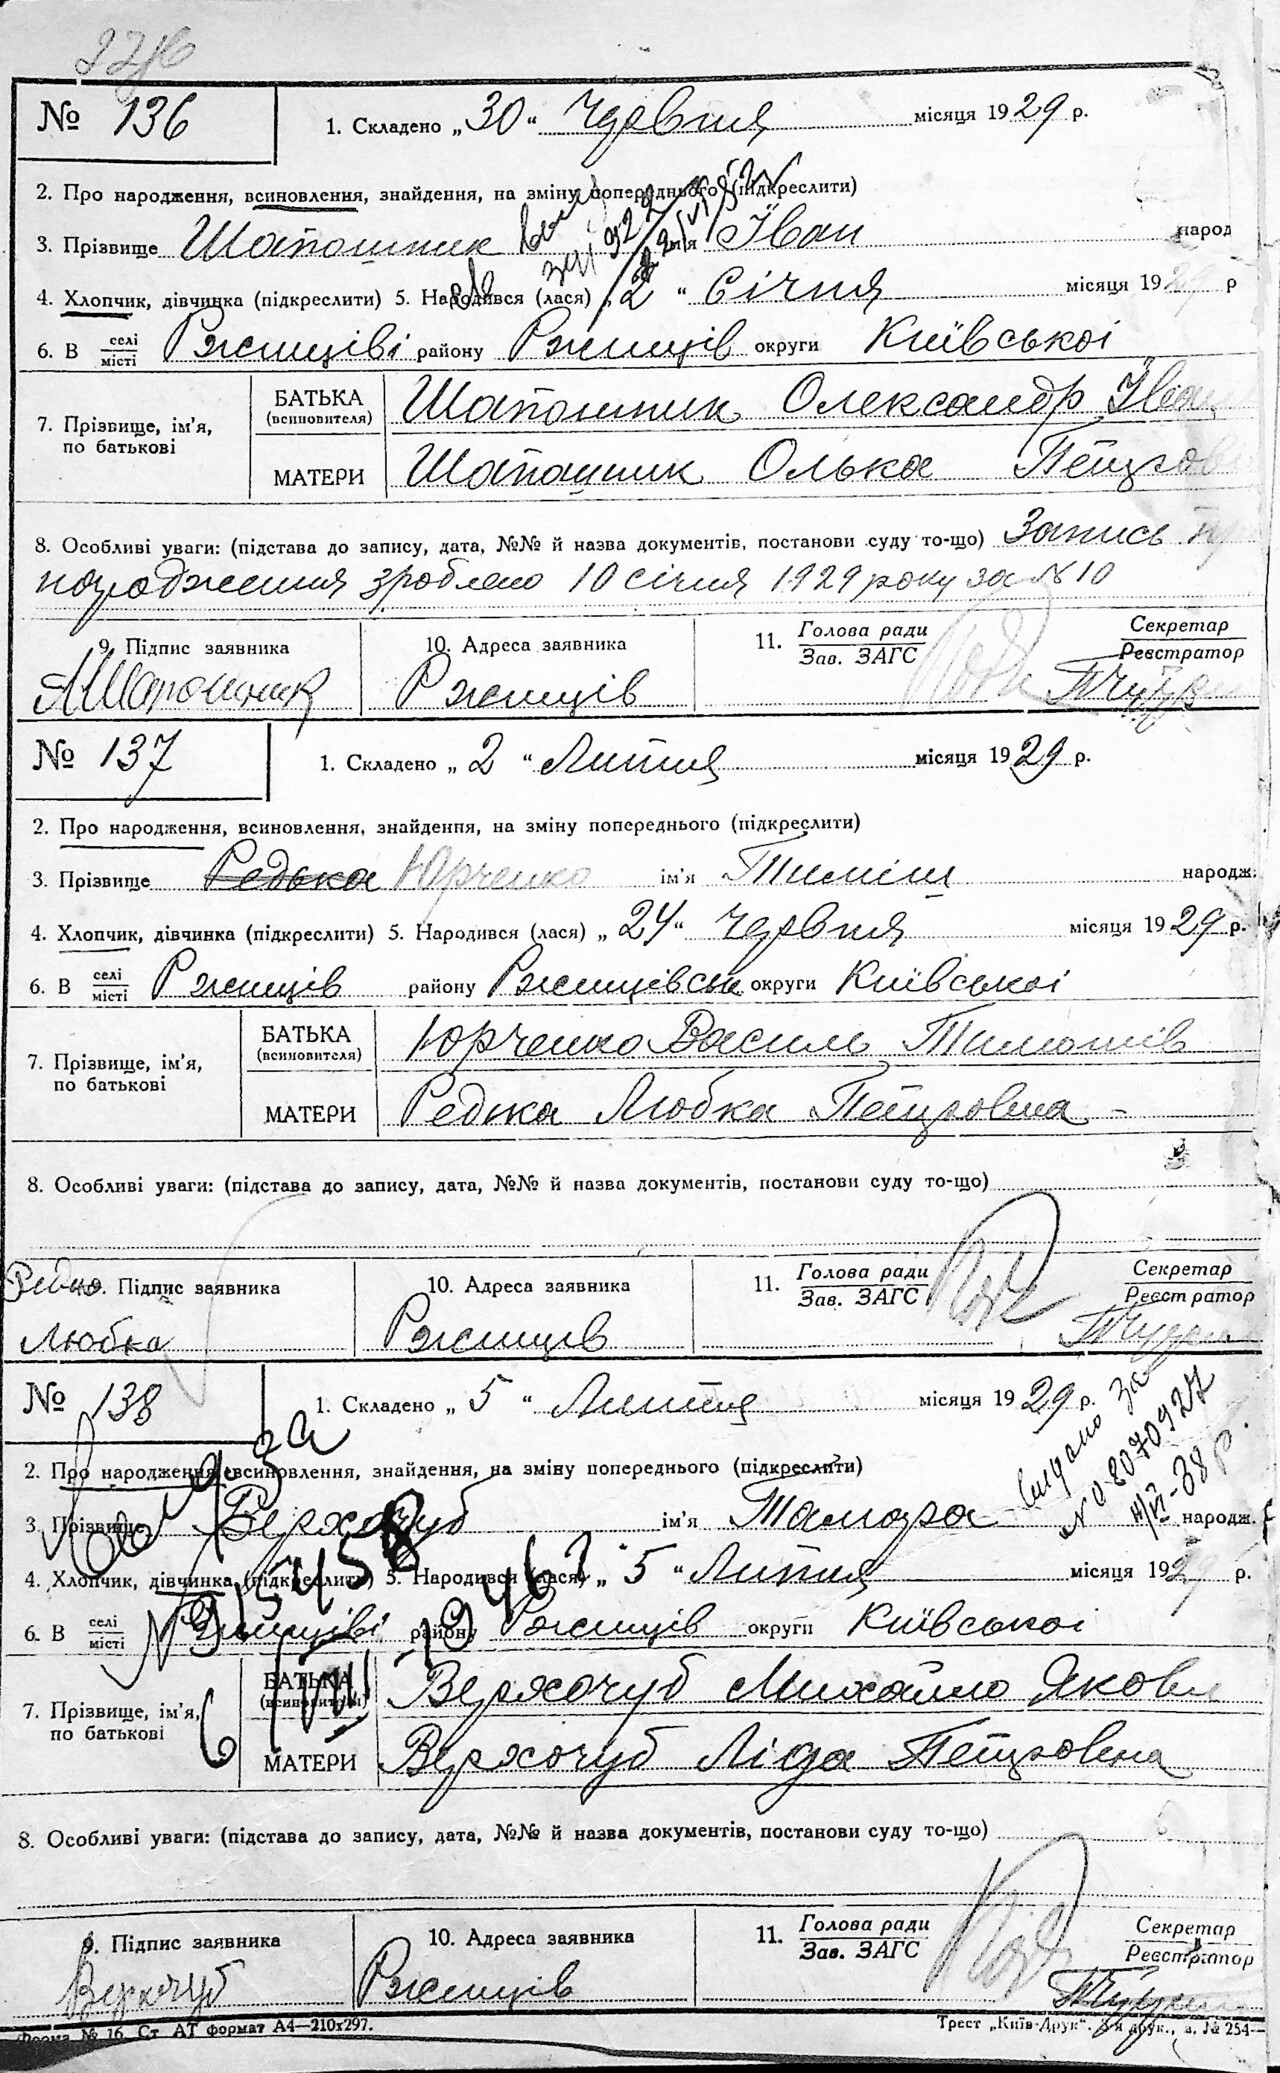 № 136
1. Складено „ 30 “ Червня місяця 1929 р.
2. Про народження, всиновлення, знайдення, на зміну попереднього (підкреслити)
3. Прізвище Шапошник ім'я Іван народ
4. Хлопчик, дівчинка (підкреслити) 5. Народився (лася) „ 2 “ Січня місяця 1929 р
6. В селі місті Ржищіві району Ржищів округи Київської
7. Прізвище, ім'я, по батькові
БАТЬКА (всиновителя) Шапошник Олександр Іван
МАТЕРИ Шапошник Олька Петров
8. Особливі уваги: (підстава до запису, дата, №№ й назва документів, постанови суду то-що) Запись пр
народження зроблено 10 січня 1929 року за № 10
9. Підпис заявника 10. Адреса заявника 11. Голова ради Зав. ЗАГС Секретар Реєстратор
АШапошник Ржищів
№ 137
1. Складено „ 2 “ Липня місяця 1929 р.
2. Про народження, всиновлення, знайдення, на зміну попереднього (підкреслити)
3. Прізвище Редька Юрченко ім'я Тиміш народж.
4. Хлопчик, дівчинка (підкреслити) 5. Народився (лася) „ 24 “ Червня місяця 1929 р.
6. В селі місті Ржищів району Ржищівськ. округи Київської
7. Прізвище, ім'я, по батькові
БАТЬКА (всиновителя) Юрченко Василь Тимошів
МАТЕРИ Редька Любка Петровна -
8. Особливі уваги: (підстава до запису, дата, №№ й назва документів, постанови суду то-що)
9. Підпис заявника 10. Адреса заявника 11. Голова ради Зав. ЗАГС Секретар Реєстратор
Любка Ржищів
№ 138
1. Складено „ 5 “ Липня місяця 1929 р.
видано за
N 0807092
2. Про народження, всиновлення, знайдення, на зміну попереднього (підкреслити)
3. Прізвище Верхочуб ім'я Тамара народж.
4. Хлопчик, дівчинка (підкреслити) 5. Народився (лася) „ 5 “ Липня місяця 1929 р.
6. В селі місті Ржищіві району Ржищів округи Київської
7. Прізвище, ім'я, по батькові
БАТЬКА (всиновителя) Верхочуб Михайло Якови
МАТЕРИ Верхочуб Ліда Петровна
8. Особливі уваги: (підстава до запису, дата, №№ й назва документів, постанови суду то-що)
9. Підпис заявника 10. Адреса заявника 11. Голова ради Зав. ЗАГС Секретар Реєстратор
Верхочуб Ржищів
Форма № 16. Ст АТ формат А4—210x297.
Трест „Київ-Друк“. друк., з. № 254—